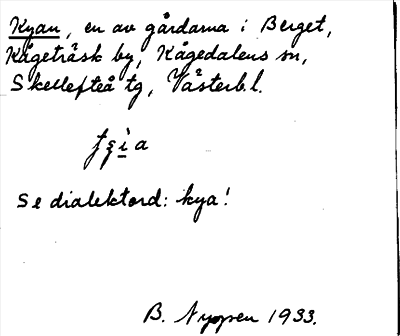 Kyan, en av gårdarna i Berget,
Kågeträsk by, Kågedalens sn,
Skellefteå tg, Västerb.l.
Se dialektord: kya!
B. Nygren 1933.